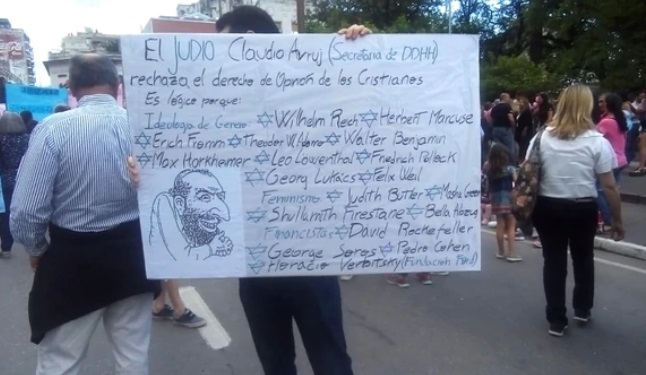 El JUDIO Claudio Avruj (Secretaria de DDHH)
rechaza el derecho de Opinión de los Cristianos
Es lógico porque:
Ideologia de Genero ✡Wilhelm Reich ✡Herbert Marcuse
✡Erich Fromm ✡Theodor W. Adorno ✡Walter Benjamin
✡Max Horkheimer ✡Leo Lowenthal ✡Friedrich Pollock
✡Georg Lukács ✡Felix Weil
Feminismo ✡Judith Butler ✡
✡Shullamith Firestone ✡Bella Abzug
Financistas ✡David Rockefeller
✡George Soros ✡Pedro Cohen
✡Horacio Verbitsky (Fundación Ford)